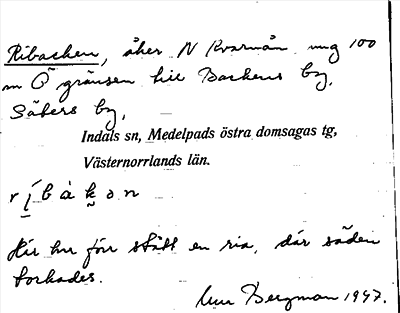 Ribacken, åker N Kvarnån ung 100
m Ö gränsen till Backens by,
Säters by,
Indals sn, Medelpads östra domsagas tg,
Västernorrlands län.
r í b à k o n
Här har förr stått en ria, där säden
torkades.
Bergman 1947.